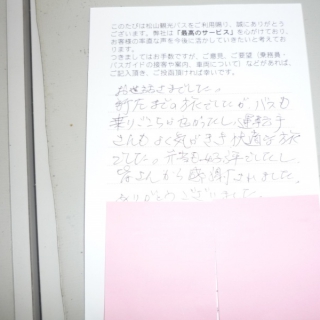 このたびは松山観光バスをご利用賜り、誠にありがとう
ございます。弊社は「最高のサービス」を心がけており、
お客様の率直な声を今後に活かしていきたいと考えてお
ります。
つきましてはお手数ですが、ご意見、ご要望（乗務員・
バスガイドの接客や案内、車両について）などがあれば、
ご記入頂き、ご投函頂ければ幸いです。
お世話さまでした。
までの旅でしたが、バスも
乗りごこちはよかったし、運転手
さんもよく気がきき快適な旅
でした。
皆さんから感謝されました。
ありがとうございました。